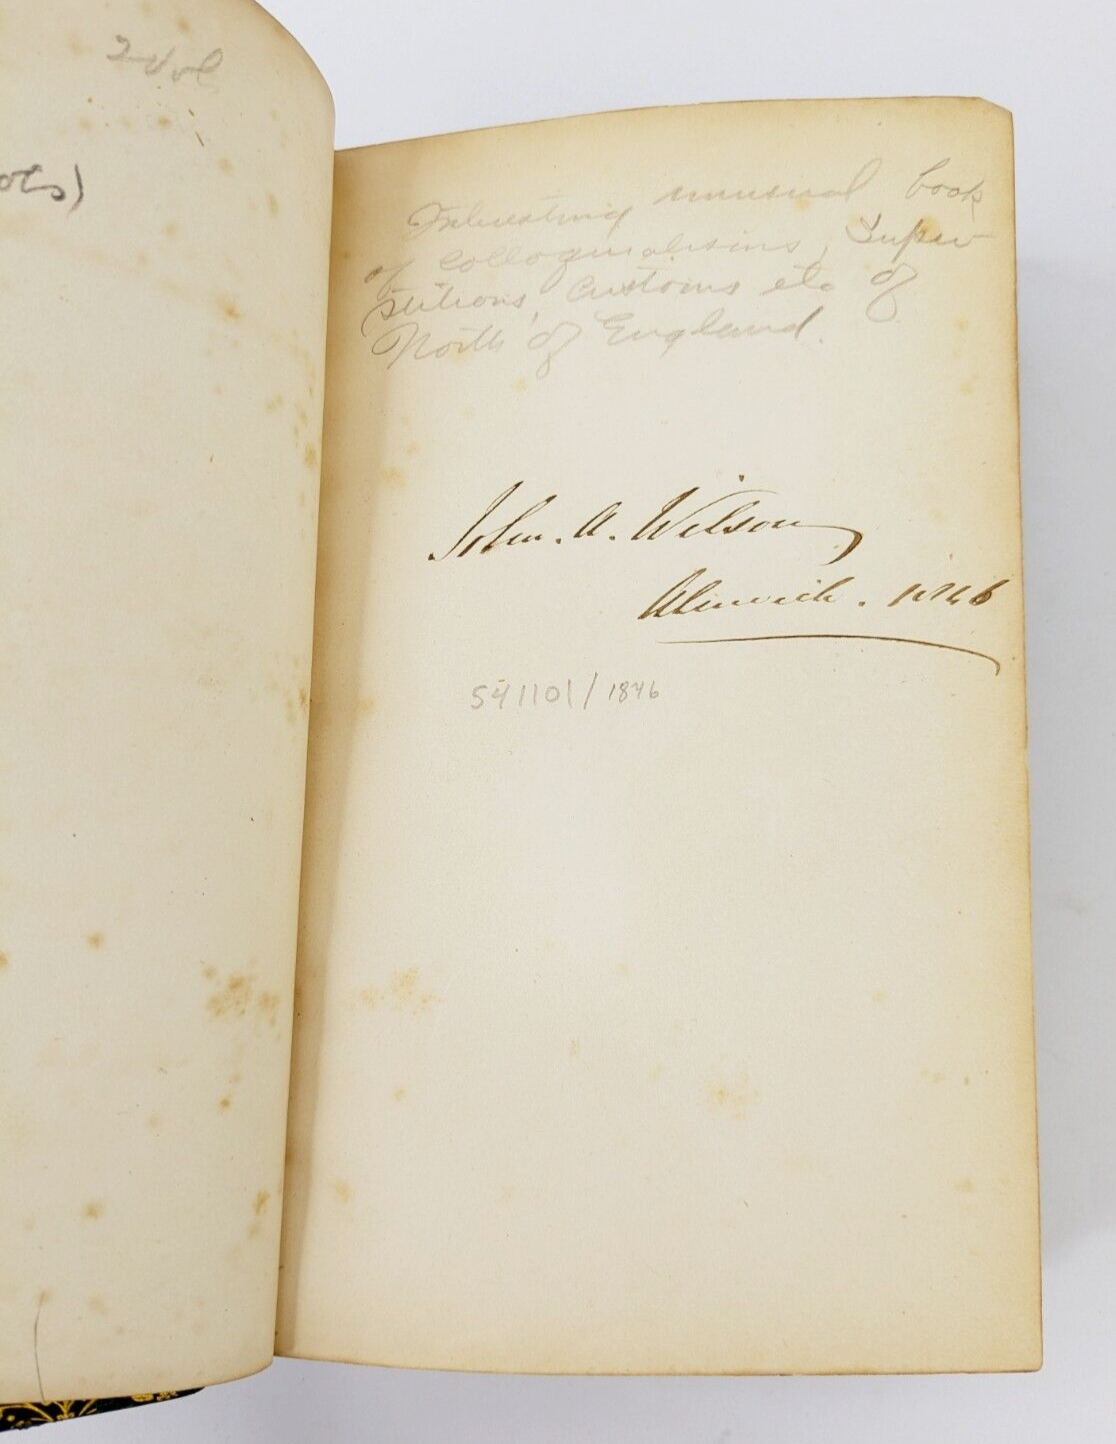 2 Vol
ots)
Interesting unusual book
of colloquialisms, Super-
stitions, Customs etc of
North of England.
John. A. Wilson
Alnwick. 1846
541101/1846